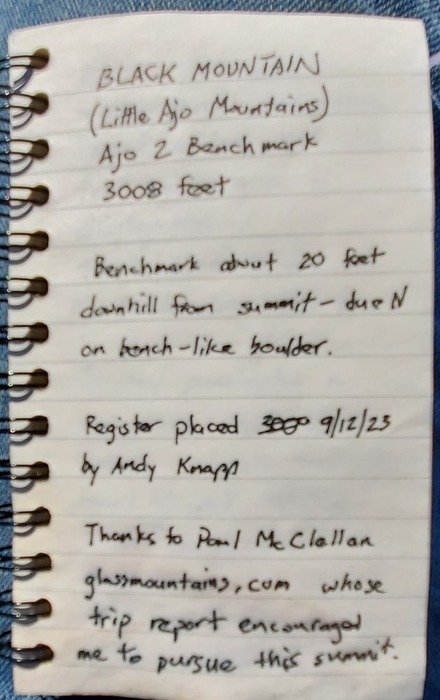 BLACK MOUNTAIN
(Little Ajo Mountains)
Ajo 2 Benchmark
3008 feet
Benchmark about 20 feet
downhill from summit - due N
on bench-like boulder.
Register placed 9/12/23
by Andy Knapp
Thanks to Paul McClellan
glassmountains.com whose
trip report encouraged
me to pursue this summit.